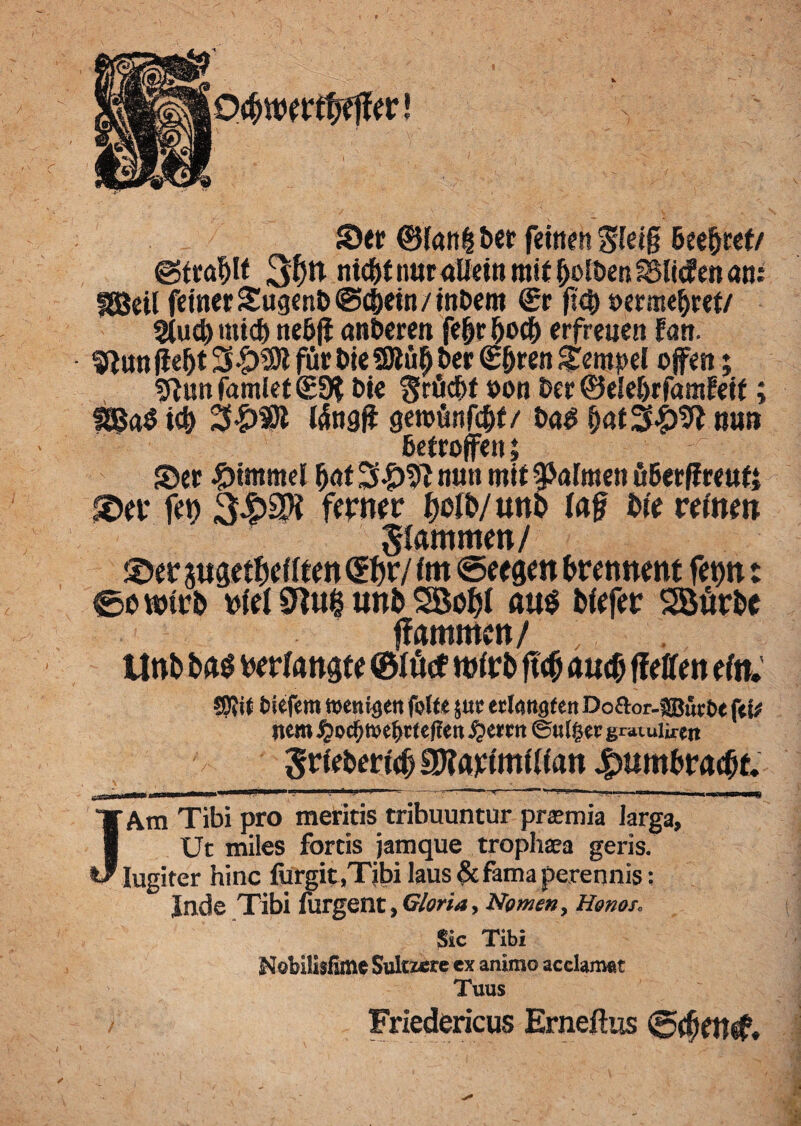 HOchwerthester!
Der Glantz der seinen Fleiß beehret/
Strahlt Jhn nicht nur allein mit holden Blicken an:
Weil seiner Tugend Schein/indem Er sich vermehret/
Auch mich nebst anderen sehr hoch erfreuen kan.
Nun steht JHM für die Müh der Ehren Tempel offen;
Nun samlet ER die Frücht von der Gelehrsamkeit;
Was ich JHM längst gewünscht/ das hat JHN nun
betroffen;
Der Himmel hat JHN nun mit Palmen überstreut;
Der sey JHM ferner hold/und laß die reinen
Flammen/
Der zugetheilten Ehr/ im Seegen brennent seyn:
So wird viel Nutz und Wohl aus dieser Würde
stammen/
Und das verlangte Glück wird sich auch stellen ein.
Mit diesem wenigen solte zur erlangten Doctor-Würde sei-
nem Hochwehrtesten Herrn Sultzer gratuliren
Friederich Maximilian Humbracht.
IAm Tibi pro meritis tribuuntur præmia larga,
Ut miles fortis jamque trophæa geris.
Iugiter hinc surgit,Tibi laus & fama perennis:
Inde Tibi surgent, Gloria, Nomen, Honos.
Sic Tibi
Nobilissime Sultzere ex animo acclamat
Tuus
Friedericus Ernestus Schenck.